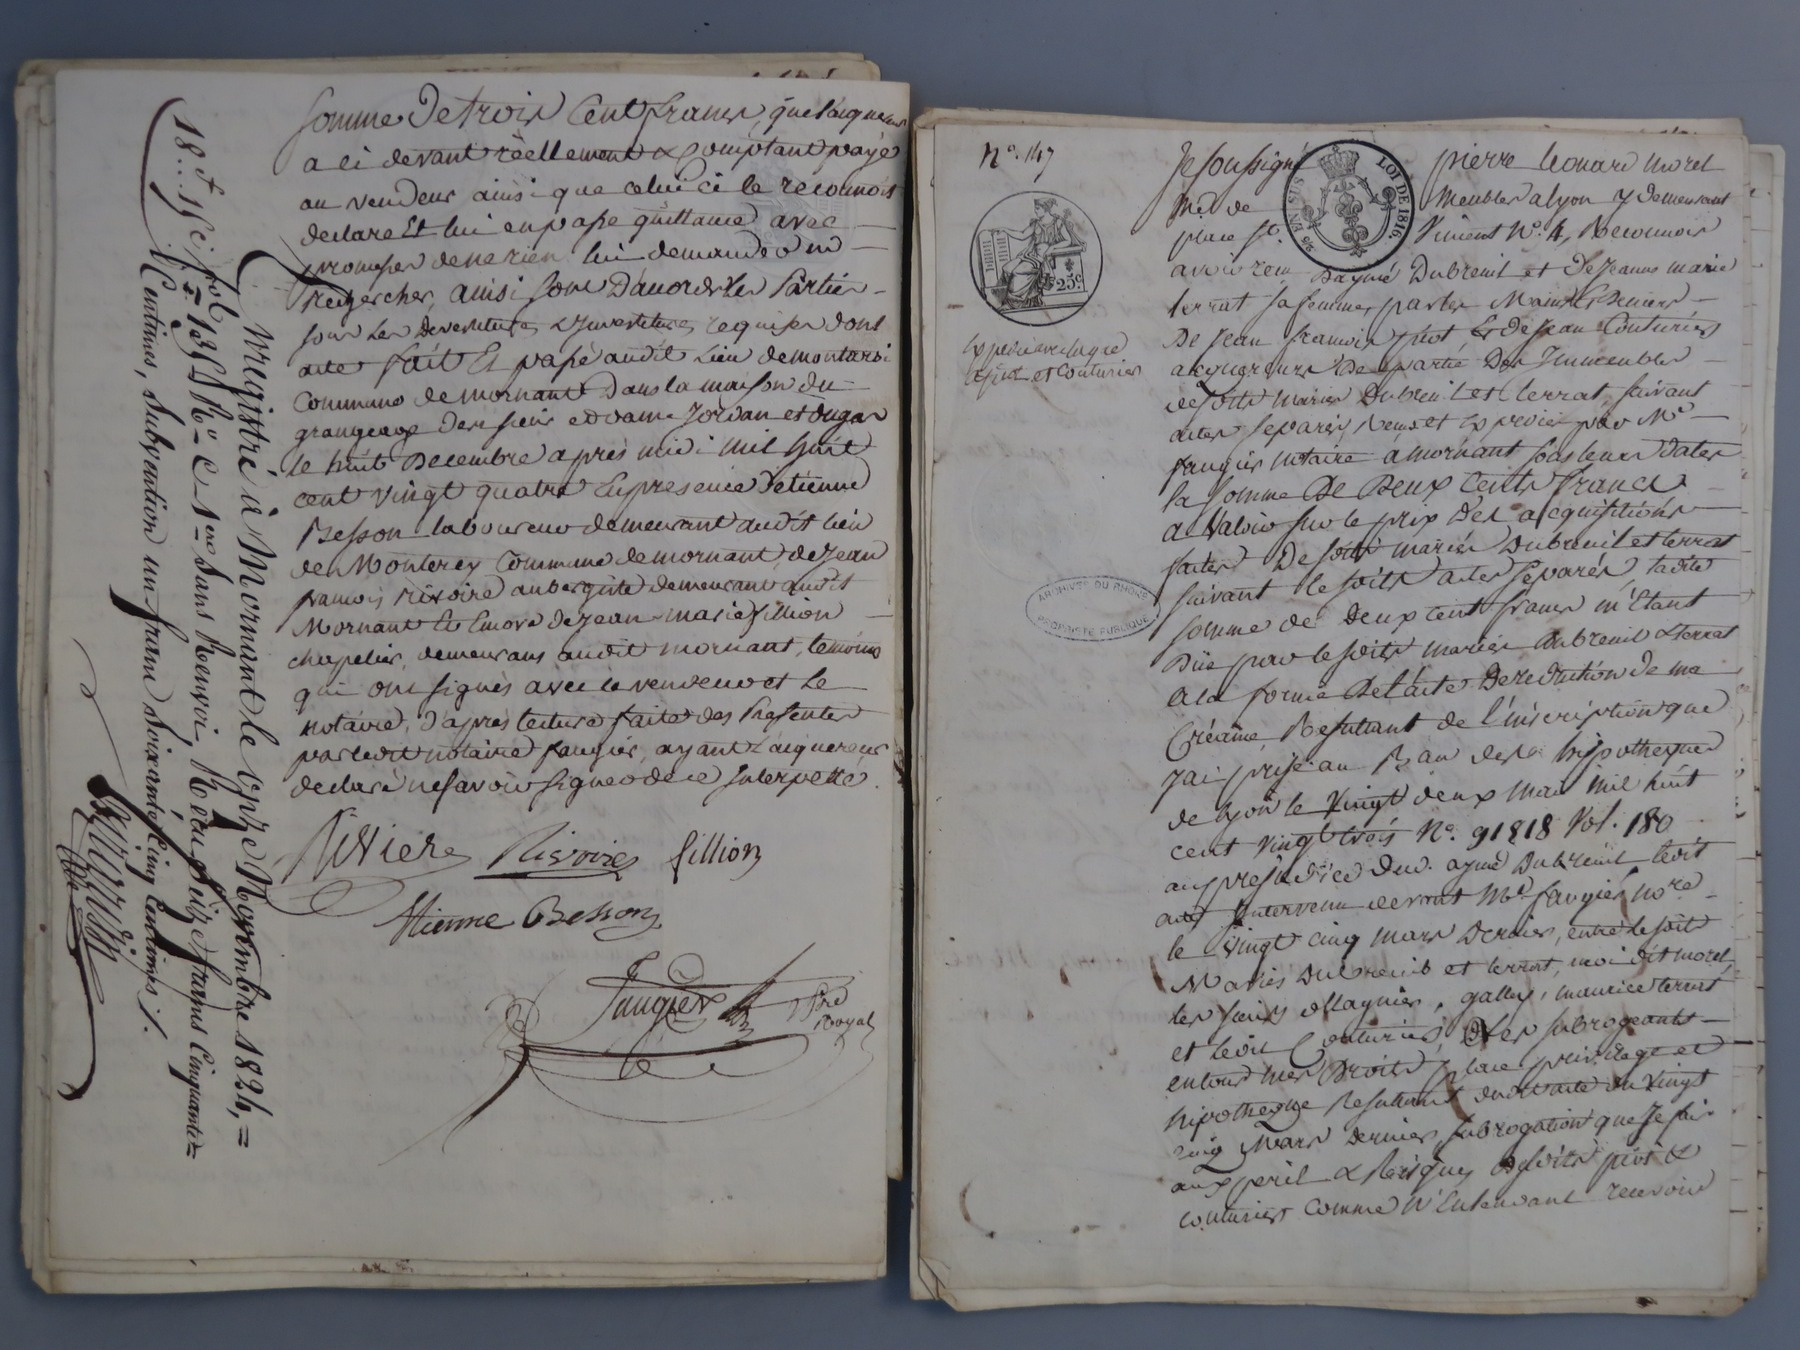 Somme De trois Cent francs, que l'acquereur
a ci devant réellement & Comptant payé
au vendeur ainsi que celui ci le reconnoit
declare Et lui en passe quittance avec
promesse de ne rien lui demander ni
rechercher, ainsi sont D'accord les Parties
sous les Devestitures & Investitures requises dont
acte fait Et passé audit Lieu de
Commune de mornant Dans la maison du
grangeage des sieur et dame Jordan et dugas
le huit Decembre après midi mil huit
cent vingt quatre En presence d'étienne
Besson laboureur demeurant audit lieu
de Monterey Commune de mornant, de Jean
francois rivoire aubergiste demeurant audit
Mornant Et Encore de Jean-marie fillion
chapelier, demeurans audit mornant, témoins
qui ont signés avec le vendeur et le
notaire, d'après lecture faite des Presentes
par ledit notaire faugier, ayant L'acquereur
declaré ne savoir signer de ce Interpellé.
Rivière Rivoire fillion
Etienne Besson
Faugier
Nre
Royal
Enregistré à Mornant le onze Novembre 1824,=
18. fol. 135 Ro C. 1ere Sans Renvoi, Reçu Seize francs Cinquante=
Centimes, Subvention un franc Soixante Cinq Centimes ./.
No. 147
25c.
EN SUS
LOI DE 1816.
ARCHIVES DU RHONE
PROPRIETE PUBLIQUE
et Couturier
Je soussigné pierre leonard morel
Md. de Meubles a lyon y demeurant
place St. Vincent No. 4, Reconnois
avoir reçu D'aymé Dubreuil et de Jeanne marie
terrat sa femme, par les Mains & Deniers
De Jean francois pitot, Et de Jean Couturier
acquereurs De partie Des Immeubles
desdits mariés Dubreuil et terrat, suivant
actes separés, reçus et Expedier par Me
faugier notaire à mornant sous leurs dates
la somme De Deux Cents francs
a Valoir sur le prix des acquisitions
faites Desdits mariés Dubreuil et terrat
suivant lesdits actes séparés, ladite
somme de Deux cent francs m'étant
Düe par lesdits mariés Dubreuil & terrat
a la forme De l'acte De reduction de ma
Créance, Resultant de l'inscription que
J'ai prise au Bau. des hipotheques
de lyon le Vingt deux mai mil huit
cent vingt trois No. 91818 Vol. 180
au préjudice dud. aymé Dubreuil ledit
acte Intervenu devant Me. faugier nore
le Vingt cinq mars Dernier, entre lesdits
Mariés Dubreuil et terrat, moi dit morel,
les sieurs Magnier, gallay, maurice terrat
et ledit Couturier, Les subrogeants
en tous mes Droits, place privilege et
hipotheque Resultant dudit acte du Vingt
cinq Mars Dernier, subrogation que Je fais
aux peril & Risques desdits pitot &
couturier comme N'Entendant recevoir